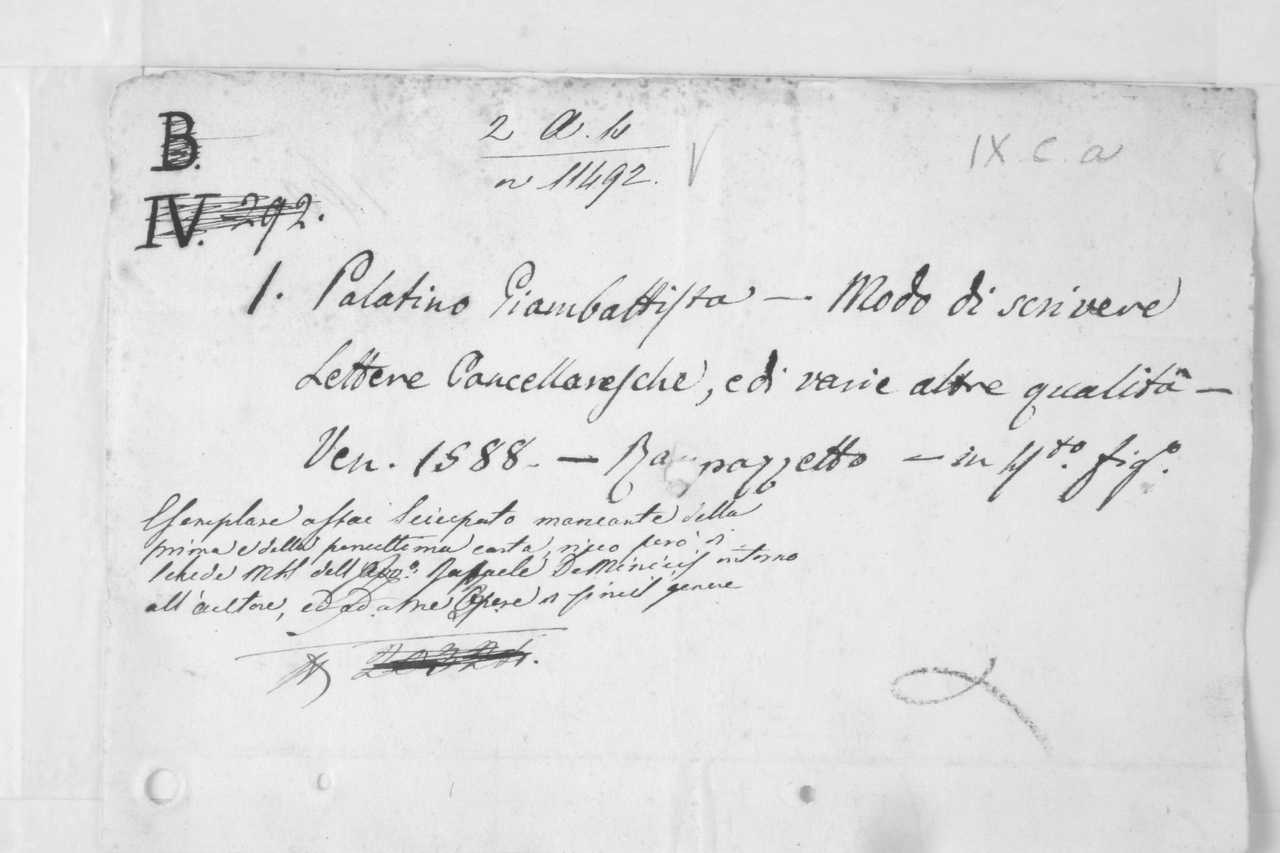 B.
2 A. b
n 11492.
IX. C. a
IV. 292.
1. Palatino Giambattista — Modo di scrivere
Lettere Cancellaresche, e di varie altre qualità —
Ven. 1588 — Rampazzetto — in 4to. figo.
Esemplare assai sciupato mancante della
prima e della penultima carta, ricco però di
schede MSS dell'Avvo. Raffaele De Minicis intorno
all'autore, ed ad altre Opere di simil genere